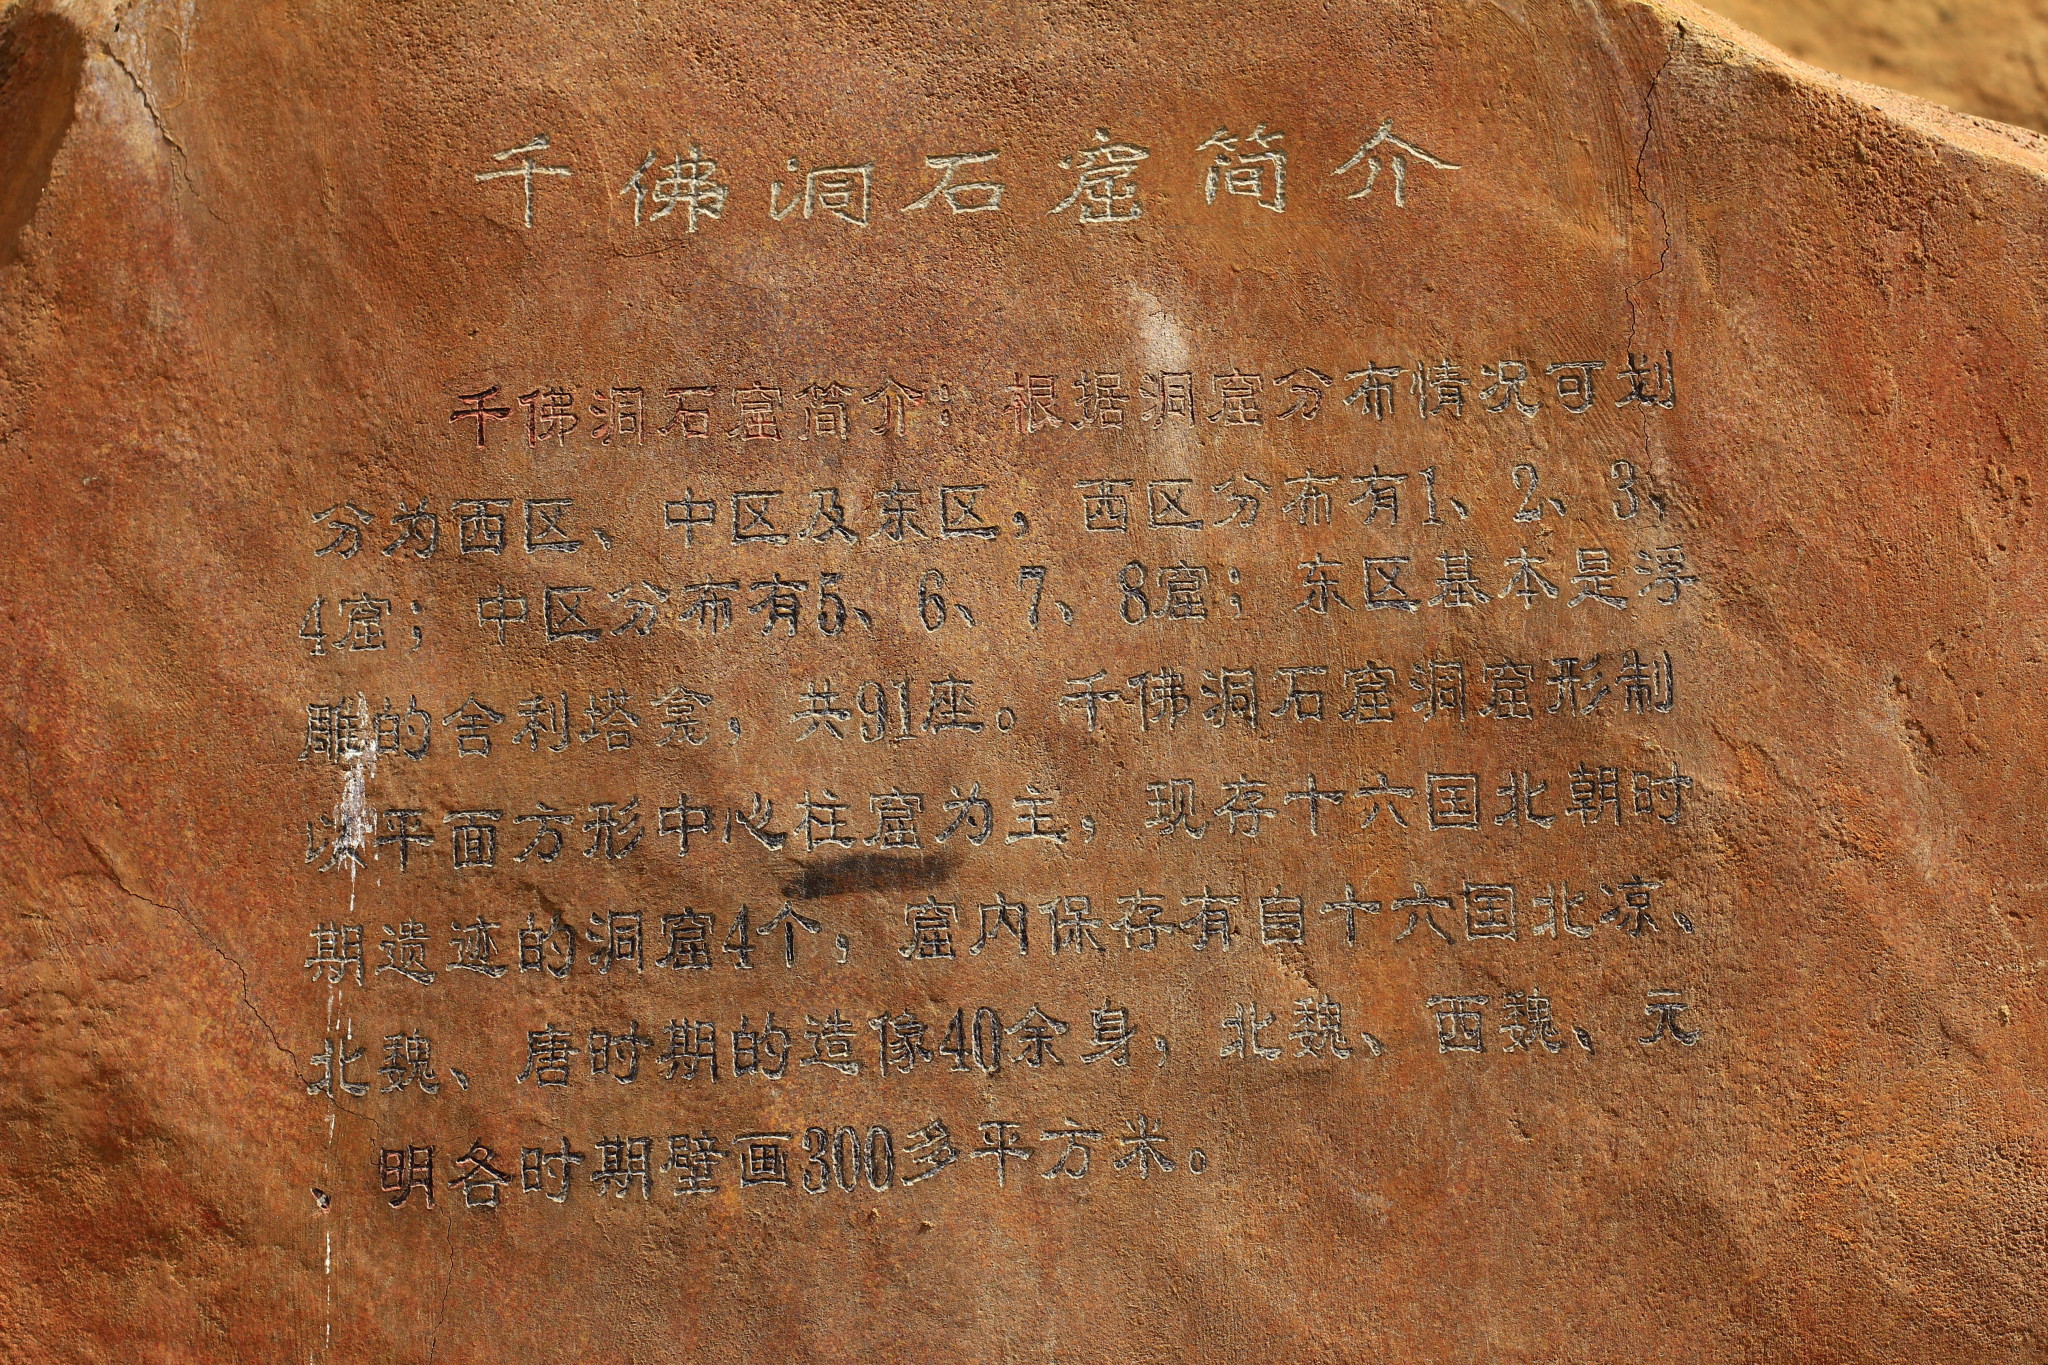 千佛洞石窟简介
千佛洞石窟简介：根据洞窟分布情况可划
分为西区、中区及东区，西区分布有1、2、3、
4窟；中区分布有5、6、7、8窟；东区基本是浮
雕的舍利塔龛，共91座。千佛洞石窟洞窟形制
以平面方形中心柱窟为主，现存十六国北朝时
期遗迹的洞窟4个，窟内保存有自十六国北凉、
北魏、唐时期的造像40余身，北魏、西魏、元
、明各时期壁画300多平方米。